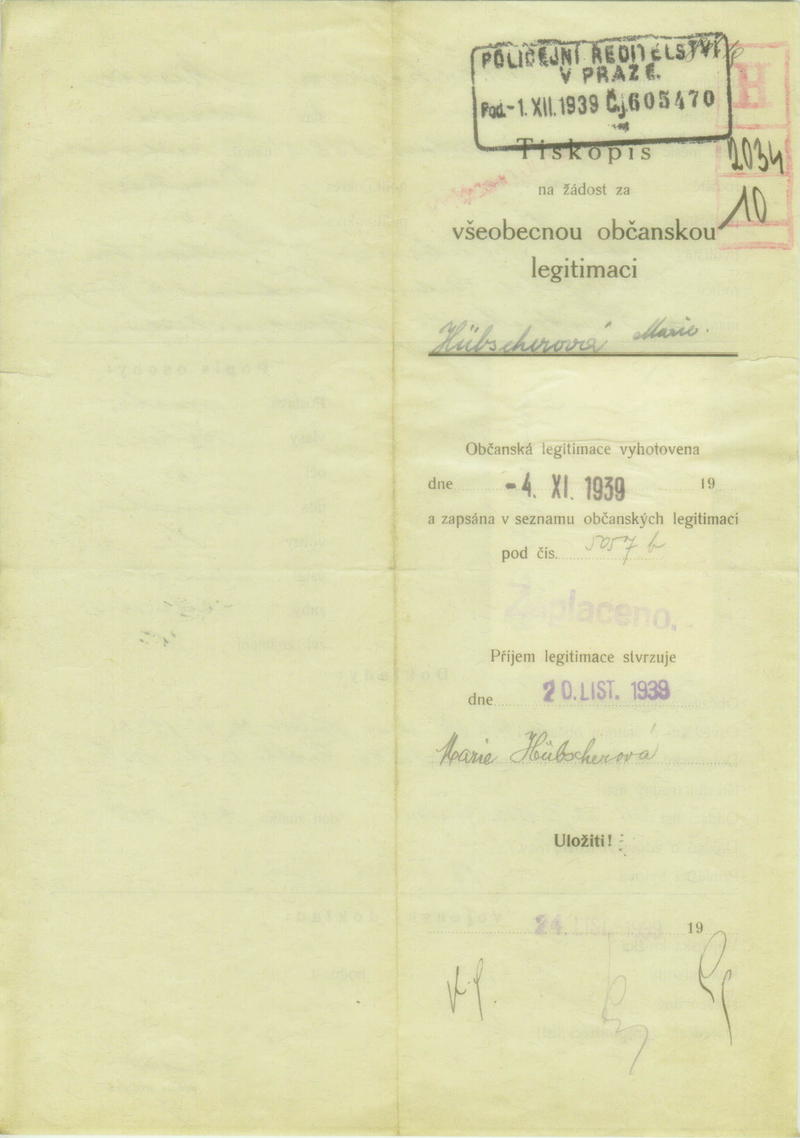 POLICEJNÍ ŘEDITELSTVÍ
V PRAZE.
Pod. -1. XII. 1939 Čj. 605470
H
2034
10
Tiskopis
na žádost za
všeobecnou občanskou
legitimaci
Hübscherová Marie.
Občanská legitimace vyhotovena
dne -4. XI. 1939 19
a zapsána v seznamu občanských legitimací
pod čís. 5057 b
Zaplaceno.
Příjem legitimace stvrzuje
dne 20. LIST. 1939
Marie Hübscherová
Uložiti!
24. LIST. 1939 19